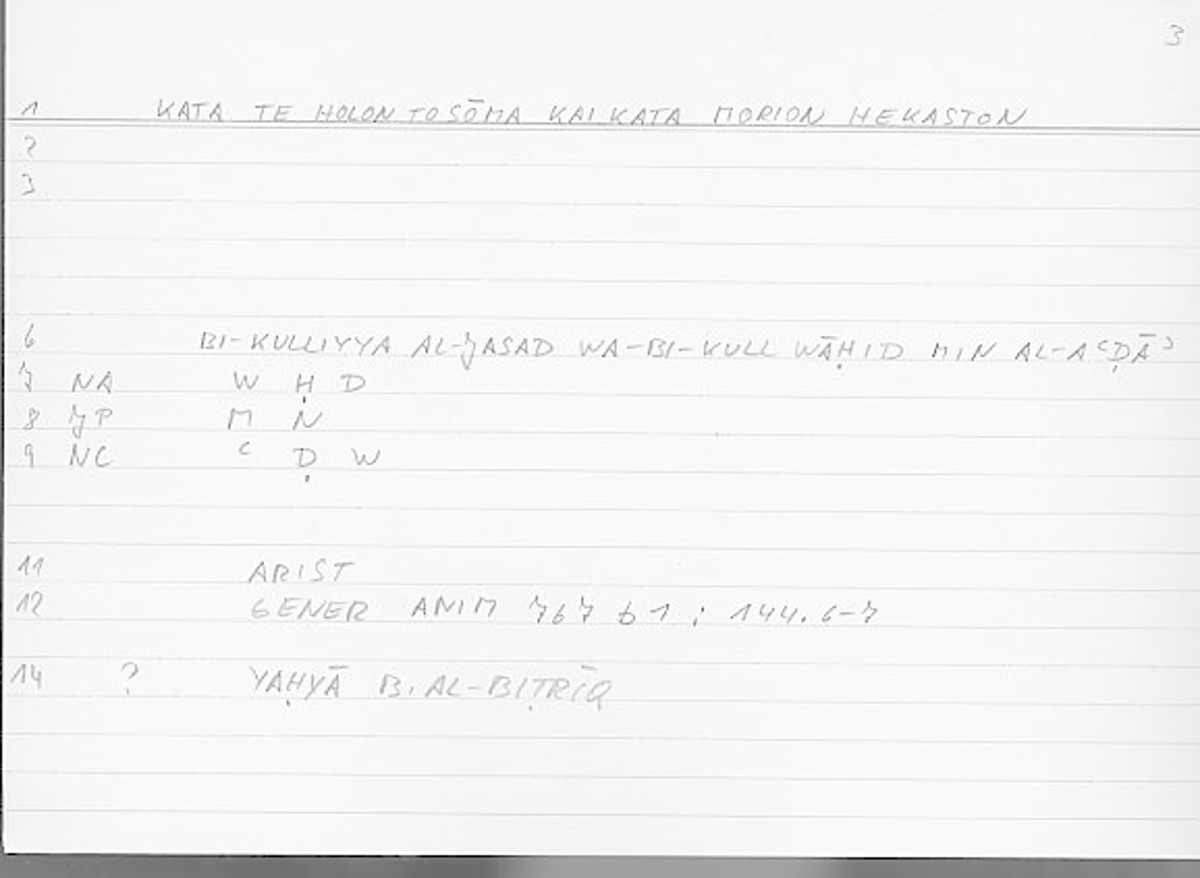 3
1 KATA TE HOLON TO SŌMA KAI KATA MORION HEKASTON
2
3
6 BI-KULLIYYA AL-JASAD WA-BI-KULL WĀḤID MIN AL-AʿḌĀʾ
7 NA W Ḥ D
8 JP M N
9 NC ʿ Ḍ W
11 ARIST
12 GENER ANIM 767 b 1 ; 144.6-7
14 ? YAḤYĀ B. AL-BIṬRĪQ